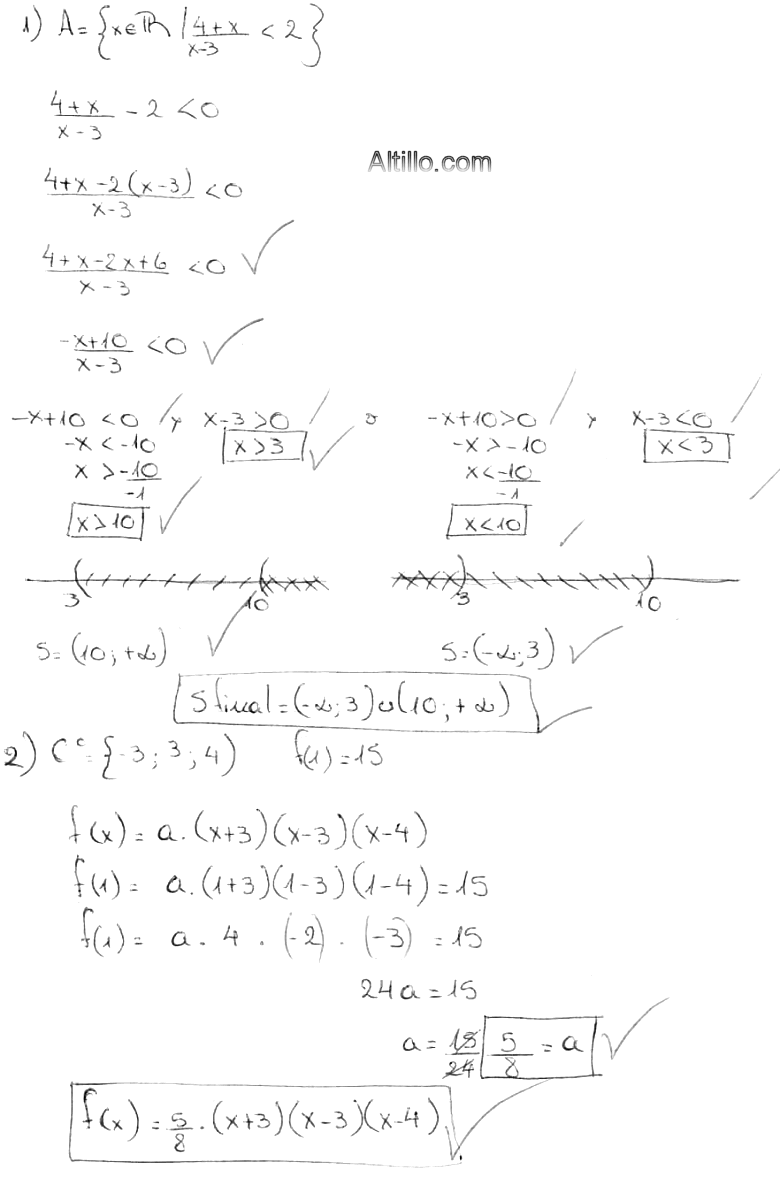 1) A = {x∈ℝ / 4+x/x-3 < 2}
4+x/x-3 - 2 < 0
Altillo.com
4+x-2(x-3)/x-3 < 0
4+x-2x+6/x-3 < 0 ✓
-x+10/x-3 < 0 ✓
-x+10 < 0 / y x-3 > 0 / o -x+10 > 0 / y x-3 < 0 /
-x < -10 x > 3 ✓ -x > -10 x < 3
x > -10/-1 x < -10/-1
x > 10 ✓ x < 10
3 10 3 10
S = (10; +∞) ✓ S = (-∞; 3) ✓
S final = (-∞; 3) ∪ (10; +∞) ✓
2) C° = {-3; 3; 4) f(1) = 15
f(x) = a.(x+3)(x-3)(x-4)
f(1) = a.(1+3)(1-3)(1-4) = 15
f(1) = a . 4 . (-2) . (-3) = 15
24a = 15
a = 15/24 5/8 = a ✓
f(x) = 5/8 . (x+3)(x-3)(x-4) ✓